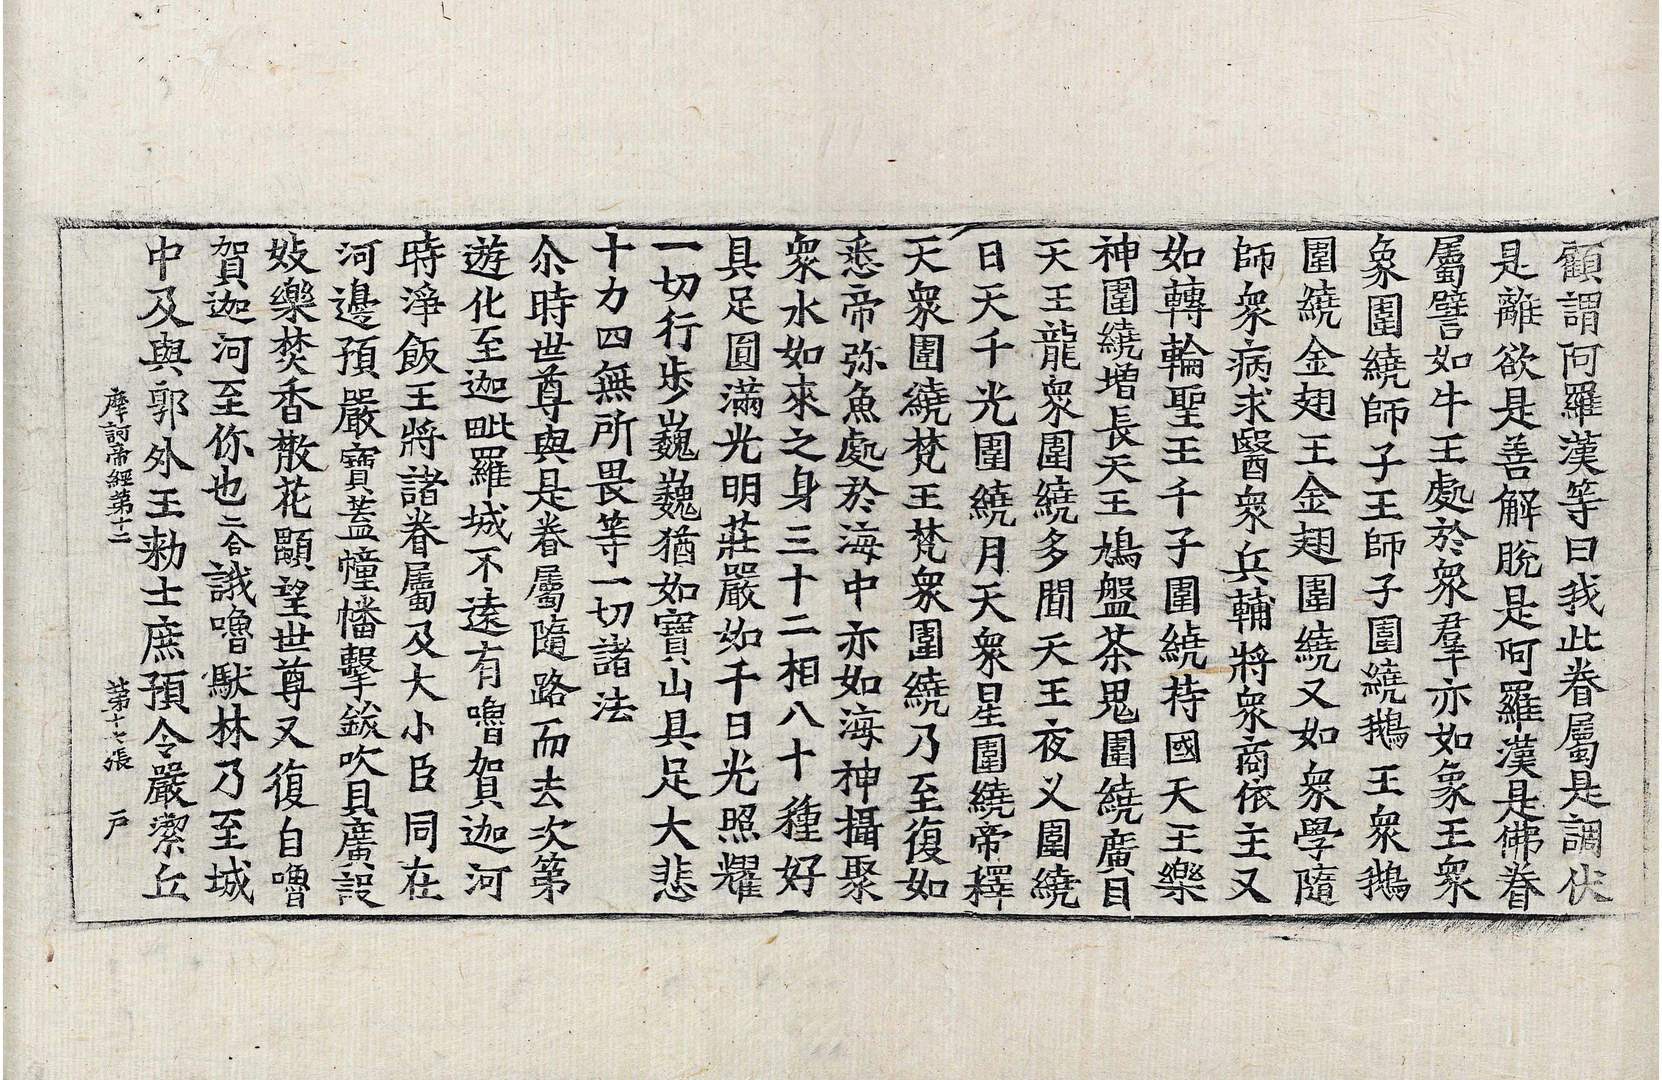 顧謂阿羅漢等曰我此眷屬是調伏
是離欲是善解脫是阿羅漢是佛眷
屬譬如牛王處於衆羣亦如象王衆
象圍繞師子王師子圍繞鵝王衆鵝
圍繞金翅王金翅圍繞又如衆學隨
師衆病求醫衆兵輔將衆商依主又
如轉輪聖王千子圍繞持國天王樂
神圍繞增長天王鳩盤茶鬼圍繞廣目
天王龍衆圍繞多聞天王夜义圍繞
日天千光圍繞月天衆星圍繞帝釋
天衆圍繞梵王梵衆圍繞乃至復如
悉帝弥魚處於海中亦如海神攝聚
衆水如來之身三十二相八十種好
具足圓滿光明莊嚴如千日光照耀
一切行步巍巍猶如寶山具足大悲
十力四無所畏等一切諸法
尒時世尊與是眷屬隨路而去次第
遊化至迦毗羅城不遠有嚕賀迦河
時淨飯王將諸眷屬及大小臣同在
河邊預嚴寶盖幢幡擊鈸吹具廣設
妓樂焚香散花顒望世尊又復自嚕
賀迦河至你也二合誐嚕馱林乃至城
中及與郭外王勑士庶預令嚴潔丘
摩訶帝經第十二 第十七張 戶